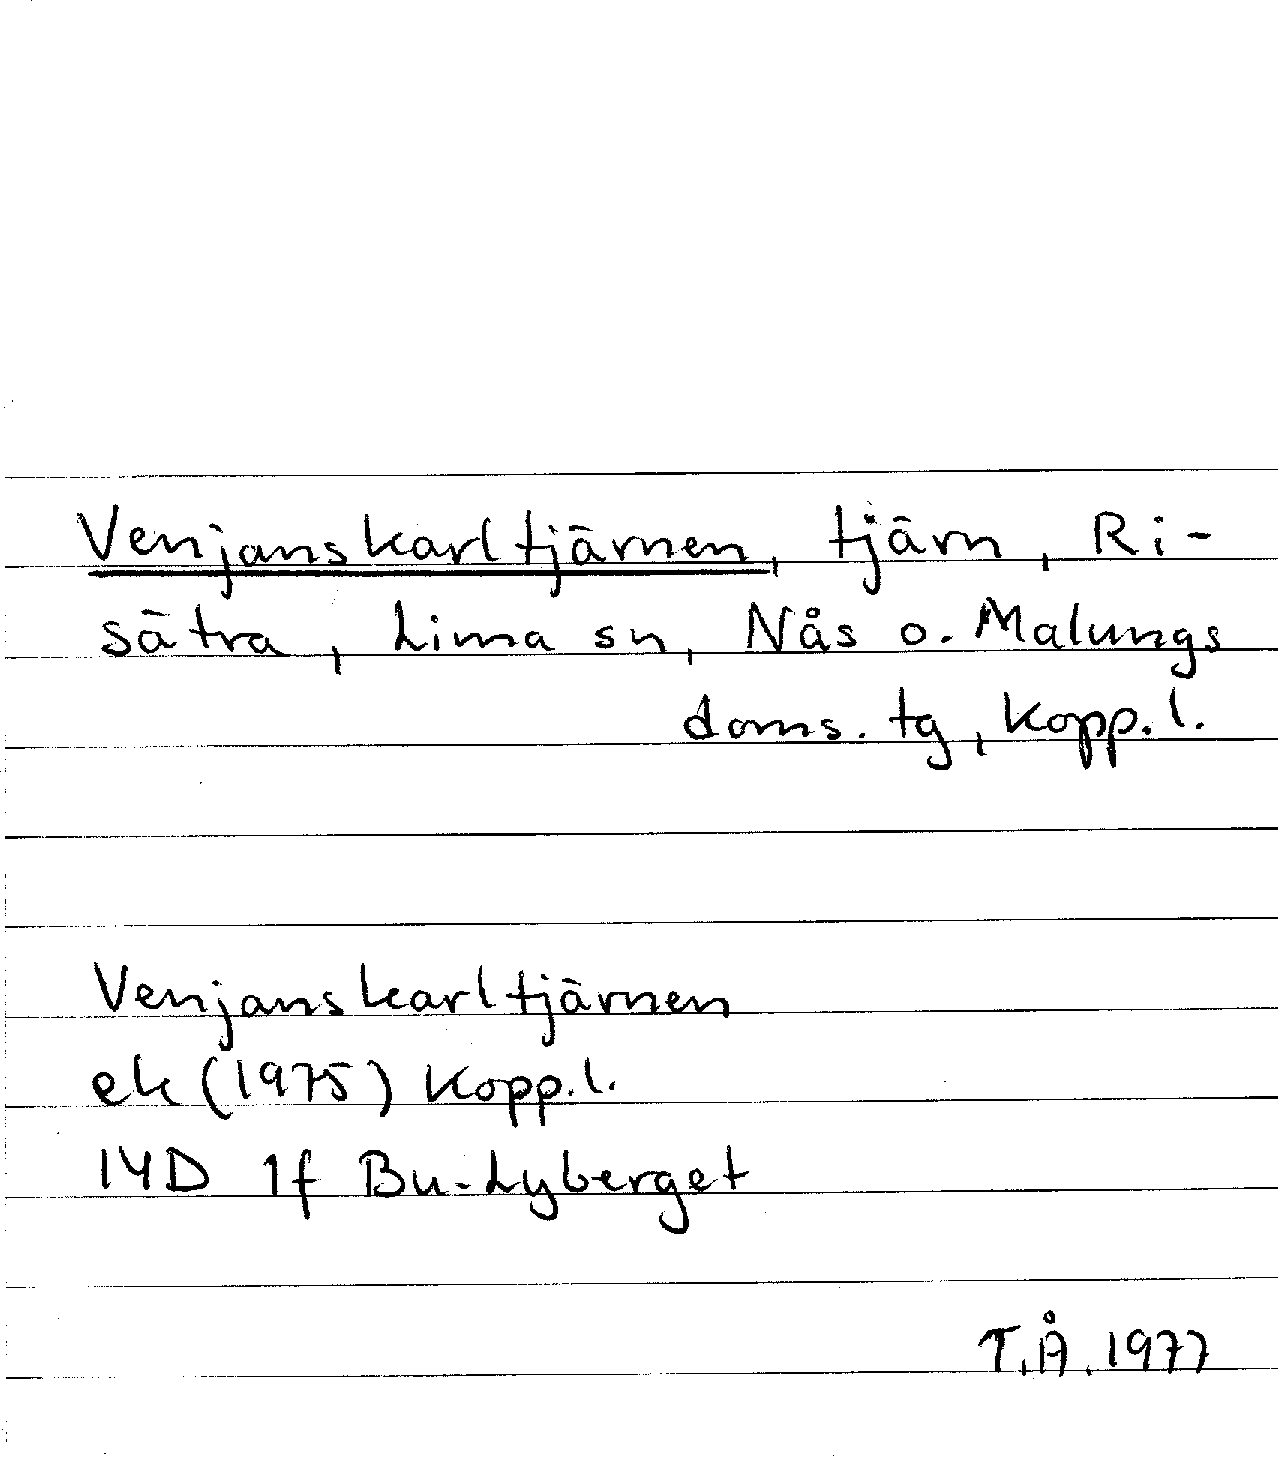 Venjanskarltjärnen, tjärn, Ri-
sätra, Lima sn, Nås o. Malungs
doms. tg, Kopp. l.
Venjanskarltjärnen
ek (1975) Kopp. l.
14D 1f Bu-Lyberget
T.Å. 1977